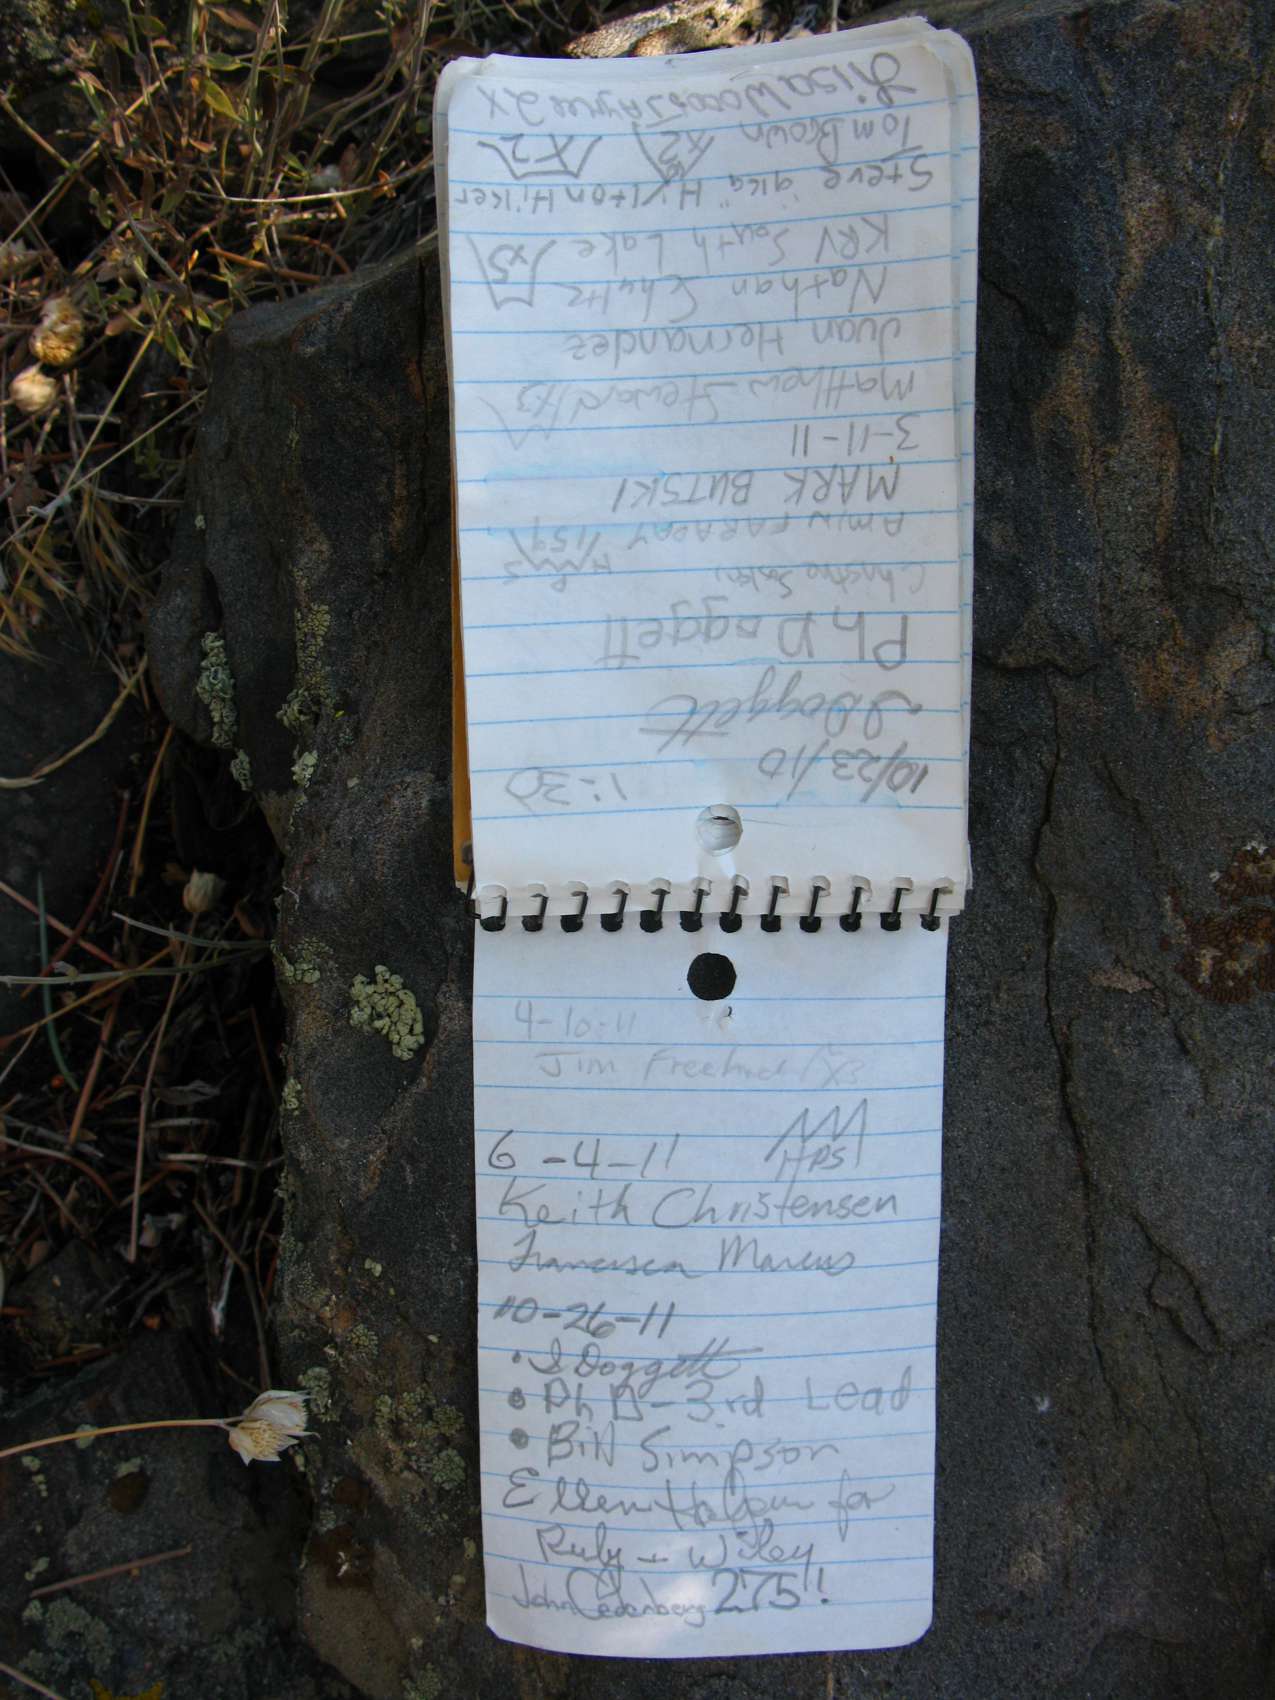 10/23/10 1:30
I Doggett
PhDoggett
AMIN FARADAY
MARK BUTSKI
3-11-11
Matthew Steward x3
Juan Hernandez
Nathan Schultz x5
KRV South Lake
Steve "aka" Hilton Hiker
Tom Brown x2 x2
Lisa Woods 2x
4-10-11
Jim x3
6-4-11 HPS
Keith Christensen
Francesca Marcus
10-26-11
• I Doggett
• PhD - 3rd Lead
• Bill Simpson
Ellen for
Ruby + Wiley
John 275!!